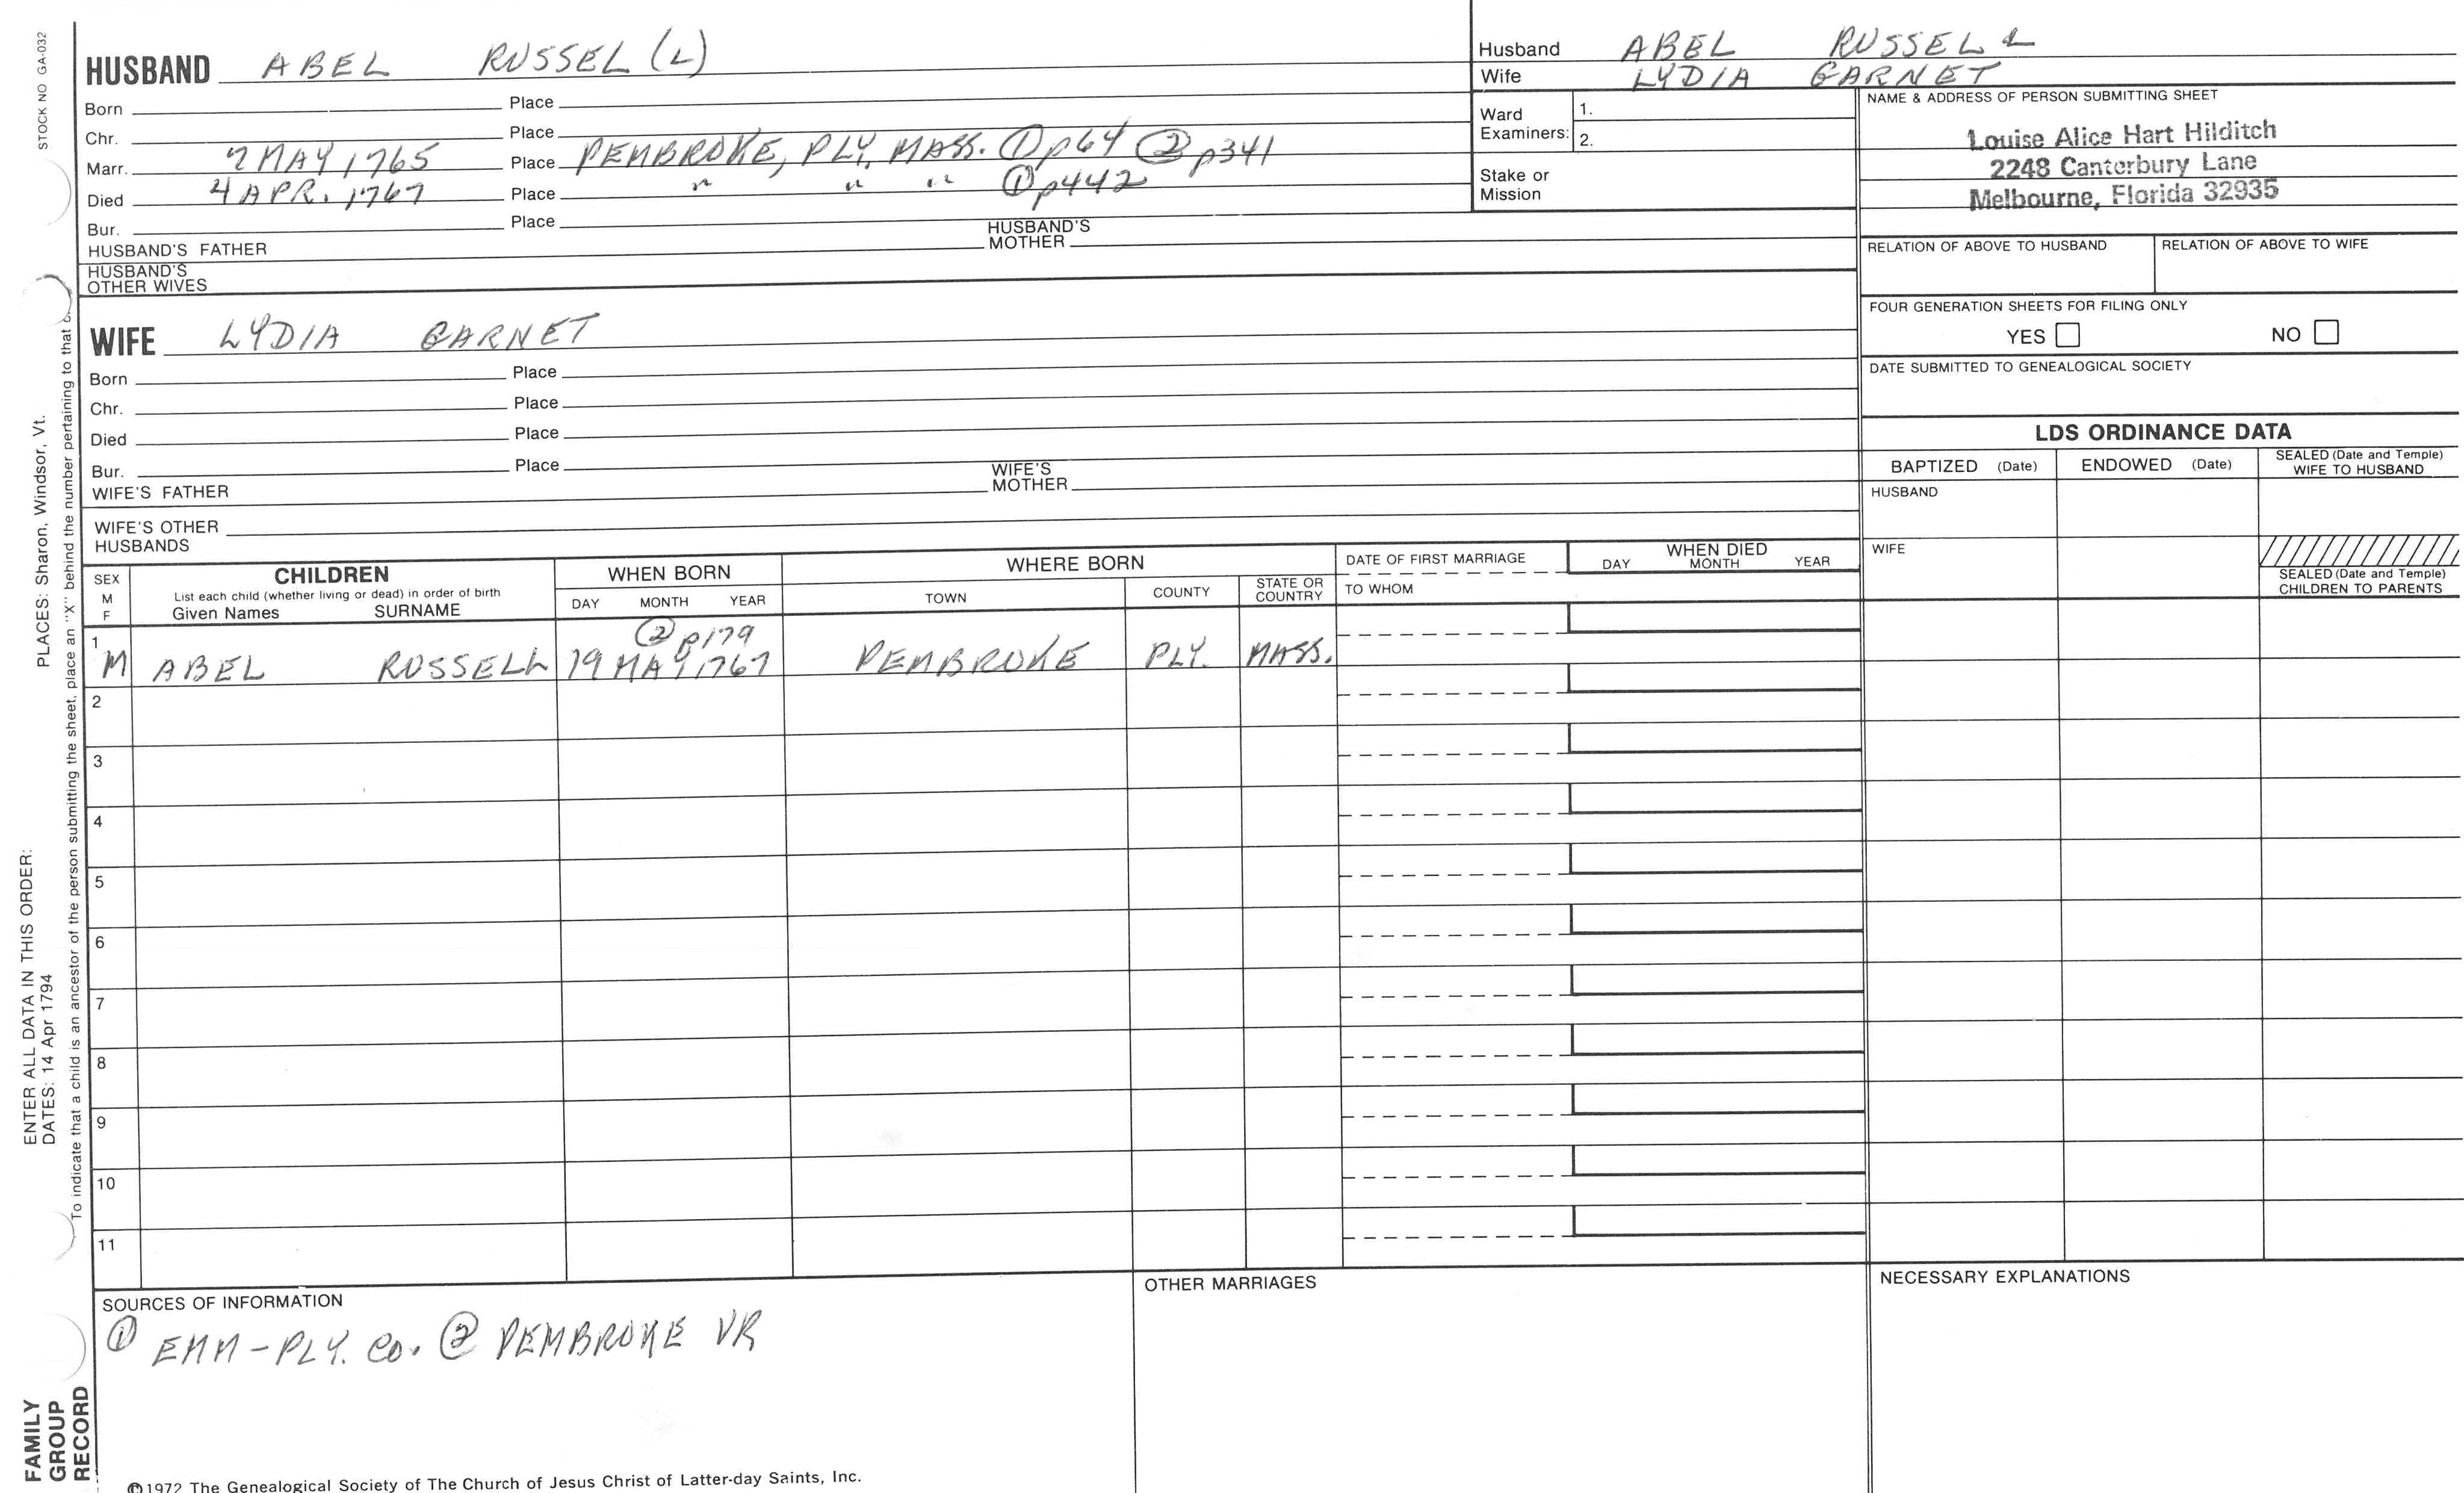 STOCK NO GA-032
PLACES: Sharon, Windsor, Vt.
ENTER ALL DATA IN THIS ORDER:
DATES: 14 Apr 1794
To indicate that a child is an ancestor of the person submitting the sheet, place an "X" behind the number pertaining to that
FAMILY
GROUP
RECORD
HUSBAND ABEL RUSSEL (L)
Born Place
Chr. Place
Marr. 7 MAY 1765 Place PEMBROKE, PLY, MASS. ① p64 ② p341
Died 4 APR. 1767 Place " " " ① p442
Bur. Place
HUSBAND'S FATHER HUSBAND'S MOTHER
HUSBAND'S
OTHER WIVES
WIFE LYDIA GARNET
Born Place
Chr. Place
Died Place
Bur. Place
WIFE'S FATHER WIFE'S MOTHER
WIFE'S OTHER
HUSBANDS
Husband ABEL RUSSELL
Wife LYDIA GARNET
Ward
Examiners: 1.
2.
Stake or
Mission
NAME & ADDRESS OF PERSON SUBMITTING SHEET
Louise Alice Hart Hilditch
2248 Canterbury Lane
Melbourne, Florida 32935
RELATION OF ABOVE TO HUSBAND RELATION OF ABOVE TO WIFE
FOUR GENERATION SHEETS FOR FILING ONLY
YES NO
DATE SUBMITTED TO GENEALOGICAL SOCIETY
LDS ORDINANCE DATA
BAPTIZED (Date) ENDOWED (Date) SEALED (Date and Temple)
WIFE TO HUSBAND
HUSBAND
WIFE
SEALED (Date and Temple)
CHILDREN TO PARENTS
SEX
M
F
CHILDREN
List each child (whether living or dead) in order of birth
Given Names SURNAME
WHEN BORN
DAY MONTH YEAR
WHERE BORN
TOWN COUNTY STATE OR
COUNTRY
DATE OF FIRST MARRIAGE
TO WHOM
WHEN DIED
DAY MONTH YEAR
② p179
1 M ABEL RUSSELL 19 MAY 1767 PEMBROKE PLY. MASS.
2
3
4
5
6
7
8
9
10
11
SOURCES OF INFORMATION
① EMM-PLY. CO. ② PEMBROKE VR
OTHER MARRIAGES
NECESSARY EXPLANATIONS
©1972 The Genealogical Society of The Church of Jesus Christ of Latter-day Saints, Inc.